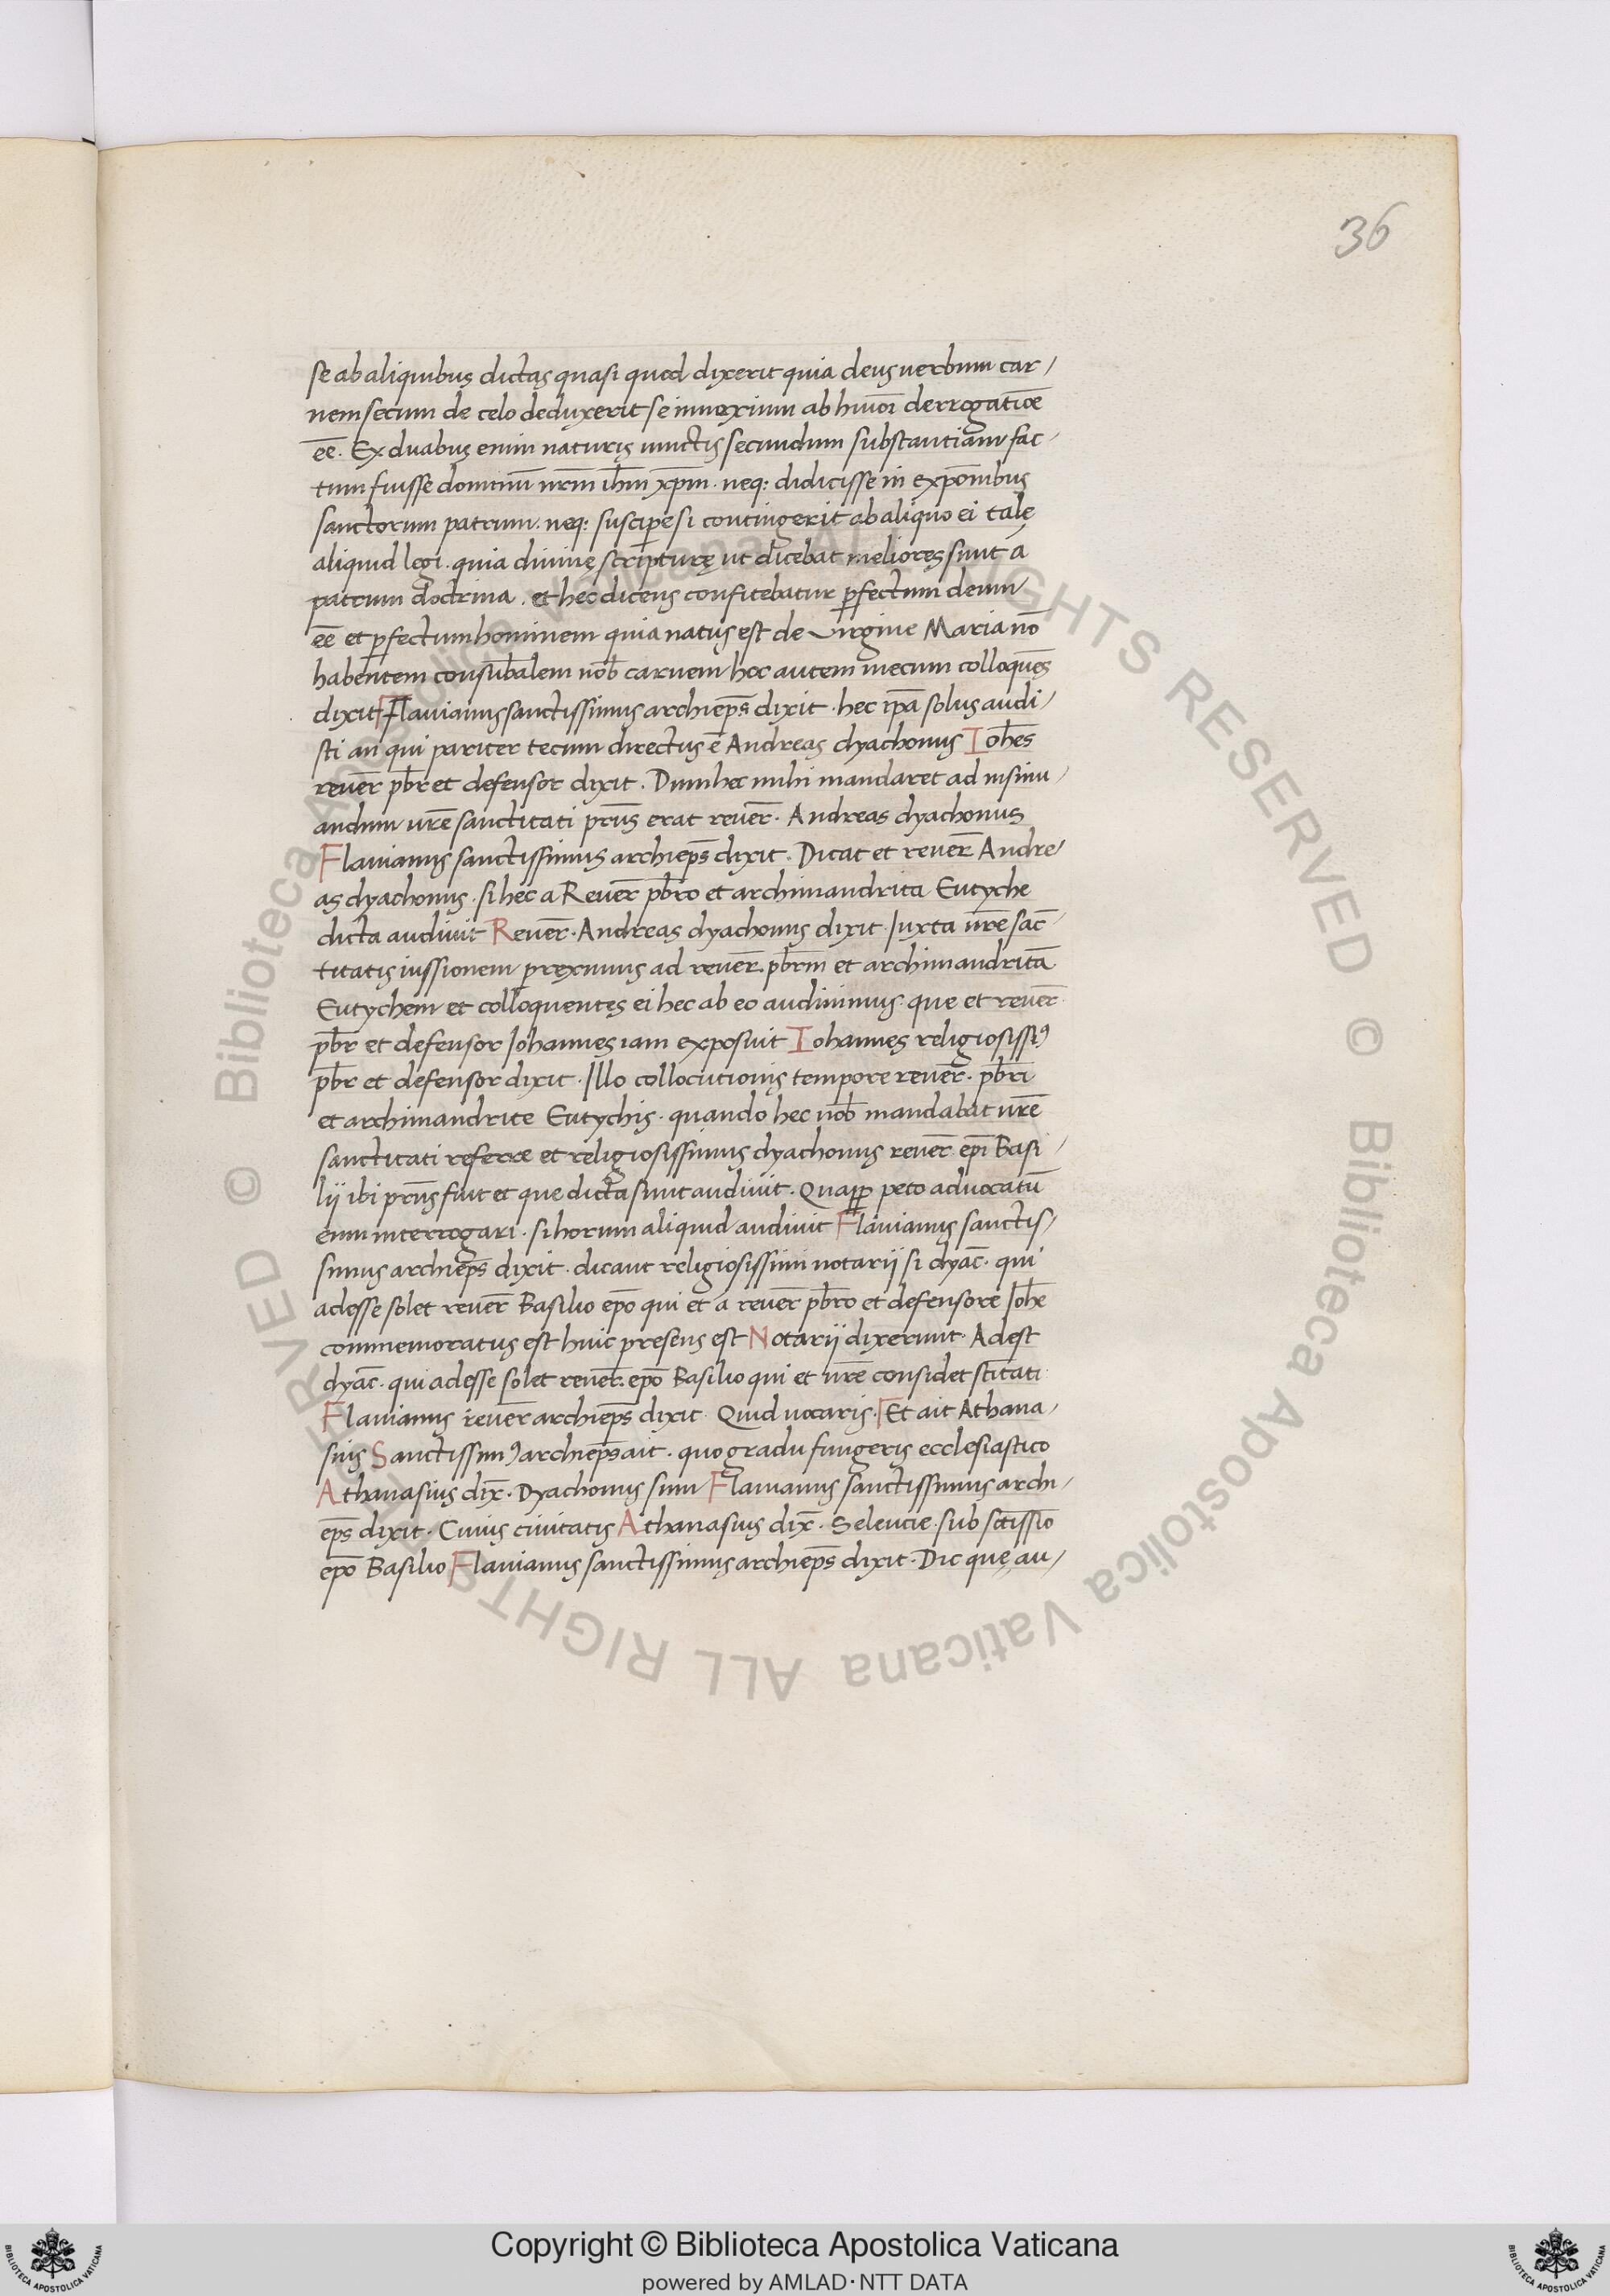 36
se ab aliquibus dictas quasi quod dixerit quia deus uerbum car-
nem secum de celo deduxerit se innoxium ab hmōi derrogatiōe
ēe. Ex duabus enim naturis unctis secundum substantiam fac-
tum fuisse dominū nr̄m ih̄m xp̄m. neq: didicisse in expōnibus
sanctorum patrum. neq: suscipe si contingerit ab aliquo ei tale
aliquid legi. quia diuine scripturę ut dicebat meliores sunt a
patrum doctrina. et hec dicens confitebatur pfectum deum
ēe et pfectum hominem quia natus est de uirgine Maria nō
habentem consub̄alem nob̄ carnem hoc autem mecum colloquēs
dixit Flauianus sanctissimus archiep̄s dixit. hec ip̄a solus audi-
sti an qui pariter tecum directus ē Andreas dyachonus Ioh̄es
reuer̄ pb̄r et defensor dixit. Dum hec mihi mandaret ad insinu-
andum ur̄e sanctitati pr̄ns erat reuer̄. Andreas dyachonus
Flauianus sanctissimus archiep̄s dixit. Dicat et reuer̄ Andre-
as dyachonus. si hec a Reuer̄ pb̄ro et archimandrita Eutyche
dicta audiuit Reuer̄. Andreas dyachonus dixit Iuxta ur̄e sac̄-
titatis iussionem preximus ad reuer̄. pb̄rm et archimandritā
Eutychem et colloquentes ei hec ab eo audiuimus. que et reuer̄
pb̄r et defensor Iohannes iam exposuit Iohannes religiosissi9
pb̄r et defensor dixit. Illo collocutionis tempore reuer̄. pb̄ri
et archimandrite Eutychis. quando hec nob̄ mandabat ur̄e
sanctitati referre et religiosissimus dyachonus reuer̄ ep̄i Basi-
lij ibi pr̄ns fuit et que dicta sunt audiuit. Quapp peto aduocatū
eum interrogari. si horum aliquid audiuit Flauianus sanctis-
simus archiep̄s dixit. dicant religiosissimi notarij si dyac̄. qui
adesse solet reuer̄ Basilio ep̄o qui et a reuer̄ pb̄ro et defensore Ioh̄e
commemoratus est huic presens est Notarij dixerunt. Adest
dyac̄. qui adesse solet reuer̄. ep̄o Basilio qui et ur̄e considet sc̄titati
Flauianus reuer̄ archiep̄s dixit. Quid uocaris. Et ait Athana-
sius Sanctissim9 archiep̄s ait. quo gradu fungeris ecclesiastico
Athanasius dix̄. Dyachonus sum Flauianus sanctissimus archi-
ep̄s dixit. Cuius ciuitatis Athanasius dix̄. Seleucie. sub sc̄tissio
ep̄o Basilio Flauianus sanctissimus archiep̄s dixit. Dic que au-
© Biblioteca Apostolica Vaticana ALL RIGHTS RESERVED © Biblioteca Apostolica Vaticana ALL RIGHTS RESERVED
BIBLIOTECA APOSTOLICA VATICANA
Copyright © Biblioteca Apostolica Vaticana
powered by AMLAD·NTT DATA
BIBLIOTECA APOSTOLICA VATICANA